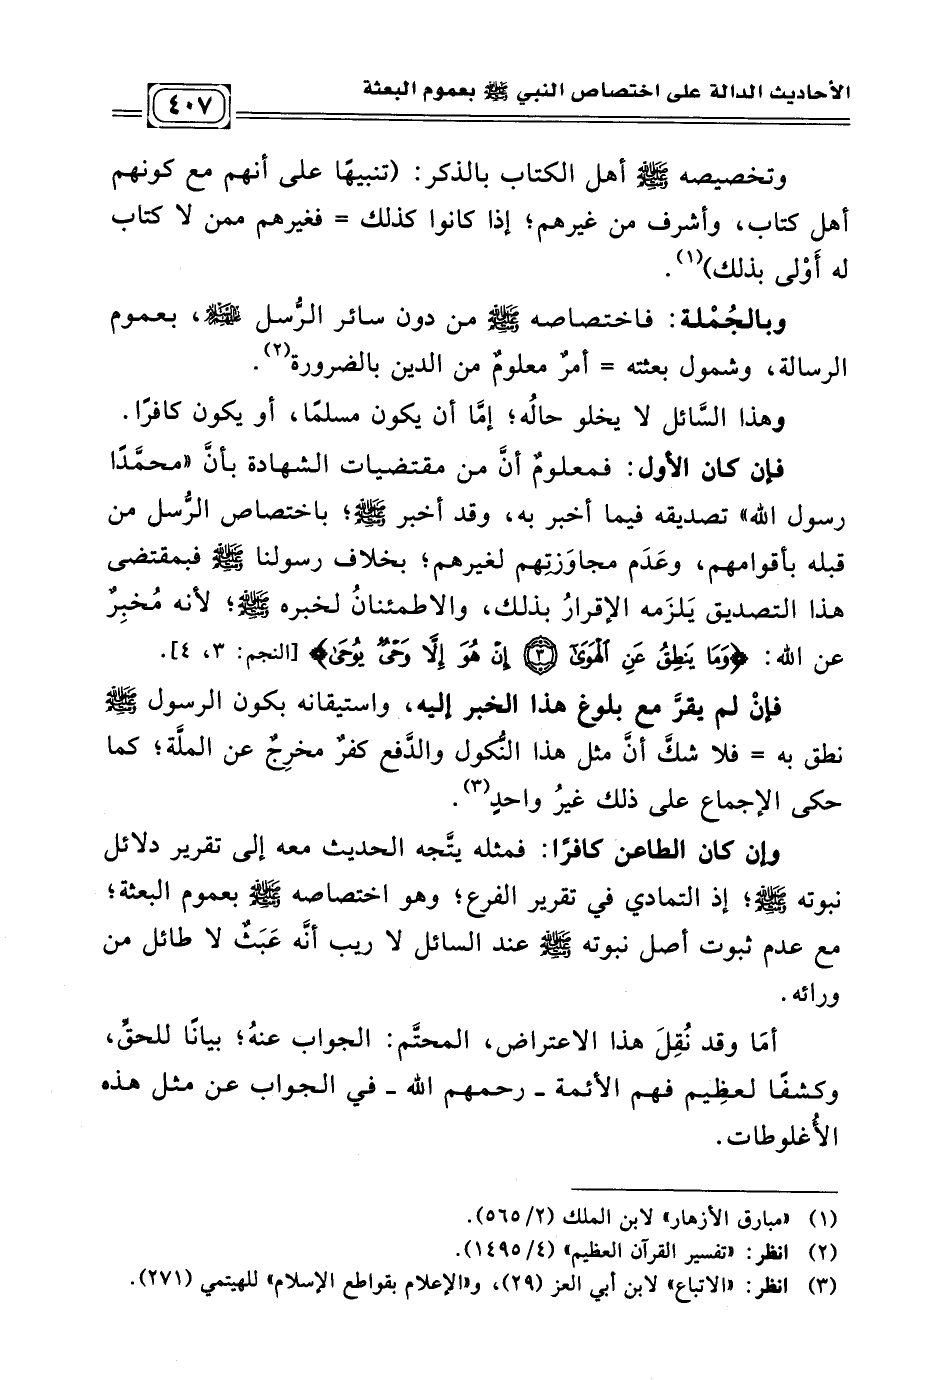 الأحاديث الدالة على اختصاص النبي ﷺ بعموم البعثة
٤٠٧
وتخصيصه ﷺ أهل الكتاب بالذكر: (تنبيهًا على أنهم مع كونهم
أهل كتاب، وأشرف من غيرهم؛ إذا كانوا كذلك = فغيرهم ممن لا كتاب
له أَوْلى بذلك)(١).
وبالجُمْلة: فاختصاصه ﷺ من دون سائر الرُّسل عليهم السلام، بعموم
الرسالة، وشمول بعثته = أمرٌ معلومٌ من الدين بالضرورة(٢).
وهذا السَّائل لا يخلو حالُه؛ إمَّا أن يكون مسلمًا، أو يكون كافرًا.
فإن كان الأول: فمعلومٌ أنَّ من مقتضيات الشهادة بأنَّ «محمَّدًا
رسول الله» تصديقه فيما أخبر به، وقد أخبر ﷺ؛ باختصاص الرُّسل من
قبله بأقوامهم، وعَدَم مجاوَزتِهم لغيرهم؛ بخلاف رسولنا ﷺ فبمقتضى
هذا التصديق يَلزمه الإقرارُ بذلك، والاطمئنانُ لخبره ﷺ؛ لأنه مُخبِرٌ
عن الله: ﴿وَمَا يَنطِقُ عَنِ ٱلۡهَوَىٰٓ ۝٣ إِنۡ هُوَ إِلَّا وَحۡيٞ يُوحَىٰ﴾ [النجم: ٣، ٤].
فإنْ لم يقرَّ مع بلوغ هذا الخبر إليه، واستيقانه بكون الرسول ﷺ
نطق به = فلا شكَّ أنَّ مثل هذا النُّكول والدَّفع كفرٌ مخرِجٌ عن الملَّة؛ كما
حكى الإجماع على ذلك غيرُ واحدٍ(٣).
وإن كان الطاعن كافرًا: فمثله يتَّجه الحديث معه إلى تقرير دلائل
نبوته ﷺ؛ إذ التمادي في تقرير الفرع؛ وهو اختصاصه ﷺ بعموم البعثة؛
مع عدم ثبوت أصل نبوته ﷺ عند السائل لا ريب أنَّه عَبَثٌ لا طائل من
ورائه.
أمَا وقد نُقِلَ هذا الاعتراض، المحتَّم: الجواب عنهُ؛ بيانًا للحقِّ،
وكشفًا لعظِيم فهم الأئمة ـ رحمهم الله ـ في الجواب عن مثل هذه
الأُغلوطات.
(١) «مبارق الأزهار» لابن الملك (٢/ ٥٦٥).
(٢) انظر: «تفسير القرآن العظيم» (٤/ ١٤٩٥).
(٣) انظر: «الاتباع» لابن أبي العز (٢٩)، و«الإعلام بقواطع الإسلام» للهيتمي (٢٧١).